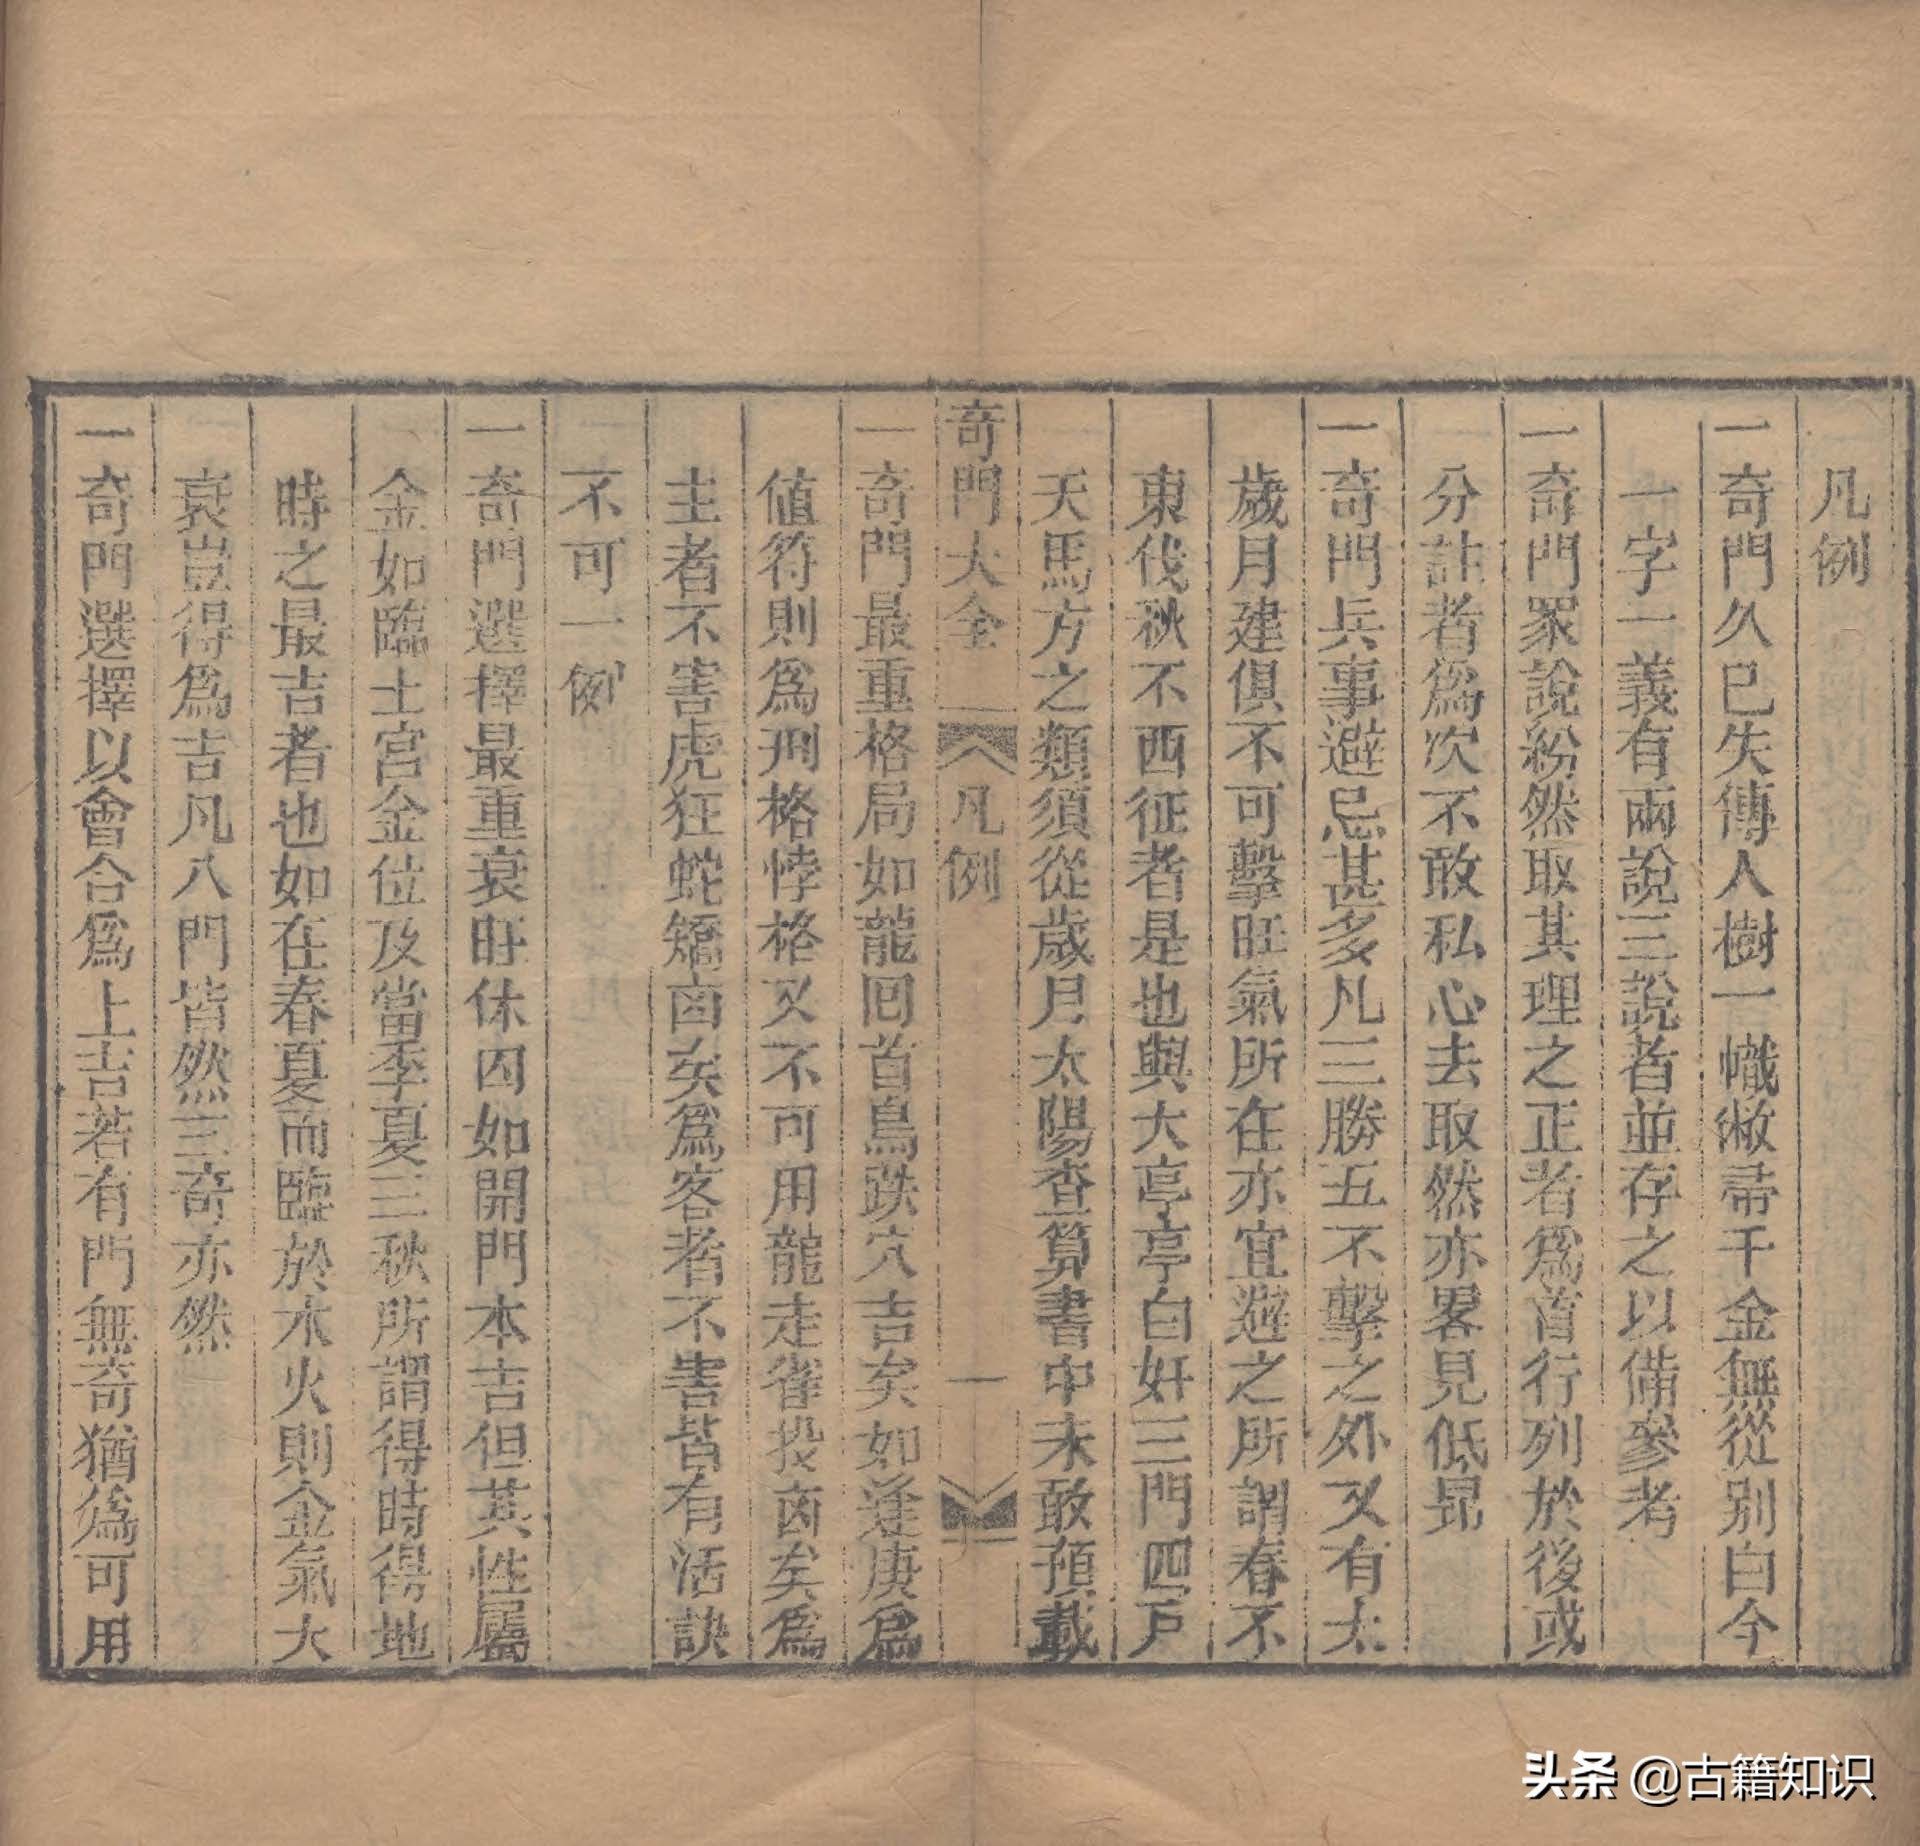 凡例
一奇門久已失傳人樹一幟敝帚千金無從别白今
一字一義有兩說三說者並存之以備參考
一奇門眾說紛然取其理之正者爲首行列於後或
分註者爲次不敢私心去取然亦畧見低昂
一奇門兵事避忌甚多凡三勝五不擊之外又有太
歲月建俱不可擊旺氣所在亦宜避之所謂春不
東伐秋不西征者是也與大亭亭白奸三門四戶
天馬方之類須從歲月太陽查算書中未敢預載
奇門大全 凡例 一
一奇門最重格局如龍囘首鳥跌穴吉矣如逢庚爲
値符則爲刑格悖格又不可用龍走雀投㐫矣爲
主者不害虎狂蛇矯㐫矣爲客者不害皆有活訣
不可一例
一奇門選擇最重衰旺休囚如開門本吉但其性屬
金如臨土宮金位及當季夏三秋所謂得時得地
時之最吉者也如在春夏而臨於木火則金氣大
衰豈得爲吉凡八門皆然三奇亦然
一奇門選擇以會合爲上吉若有門無奇猶爲可用
头条 @古籍知识